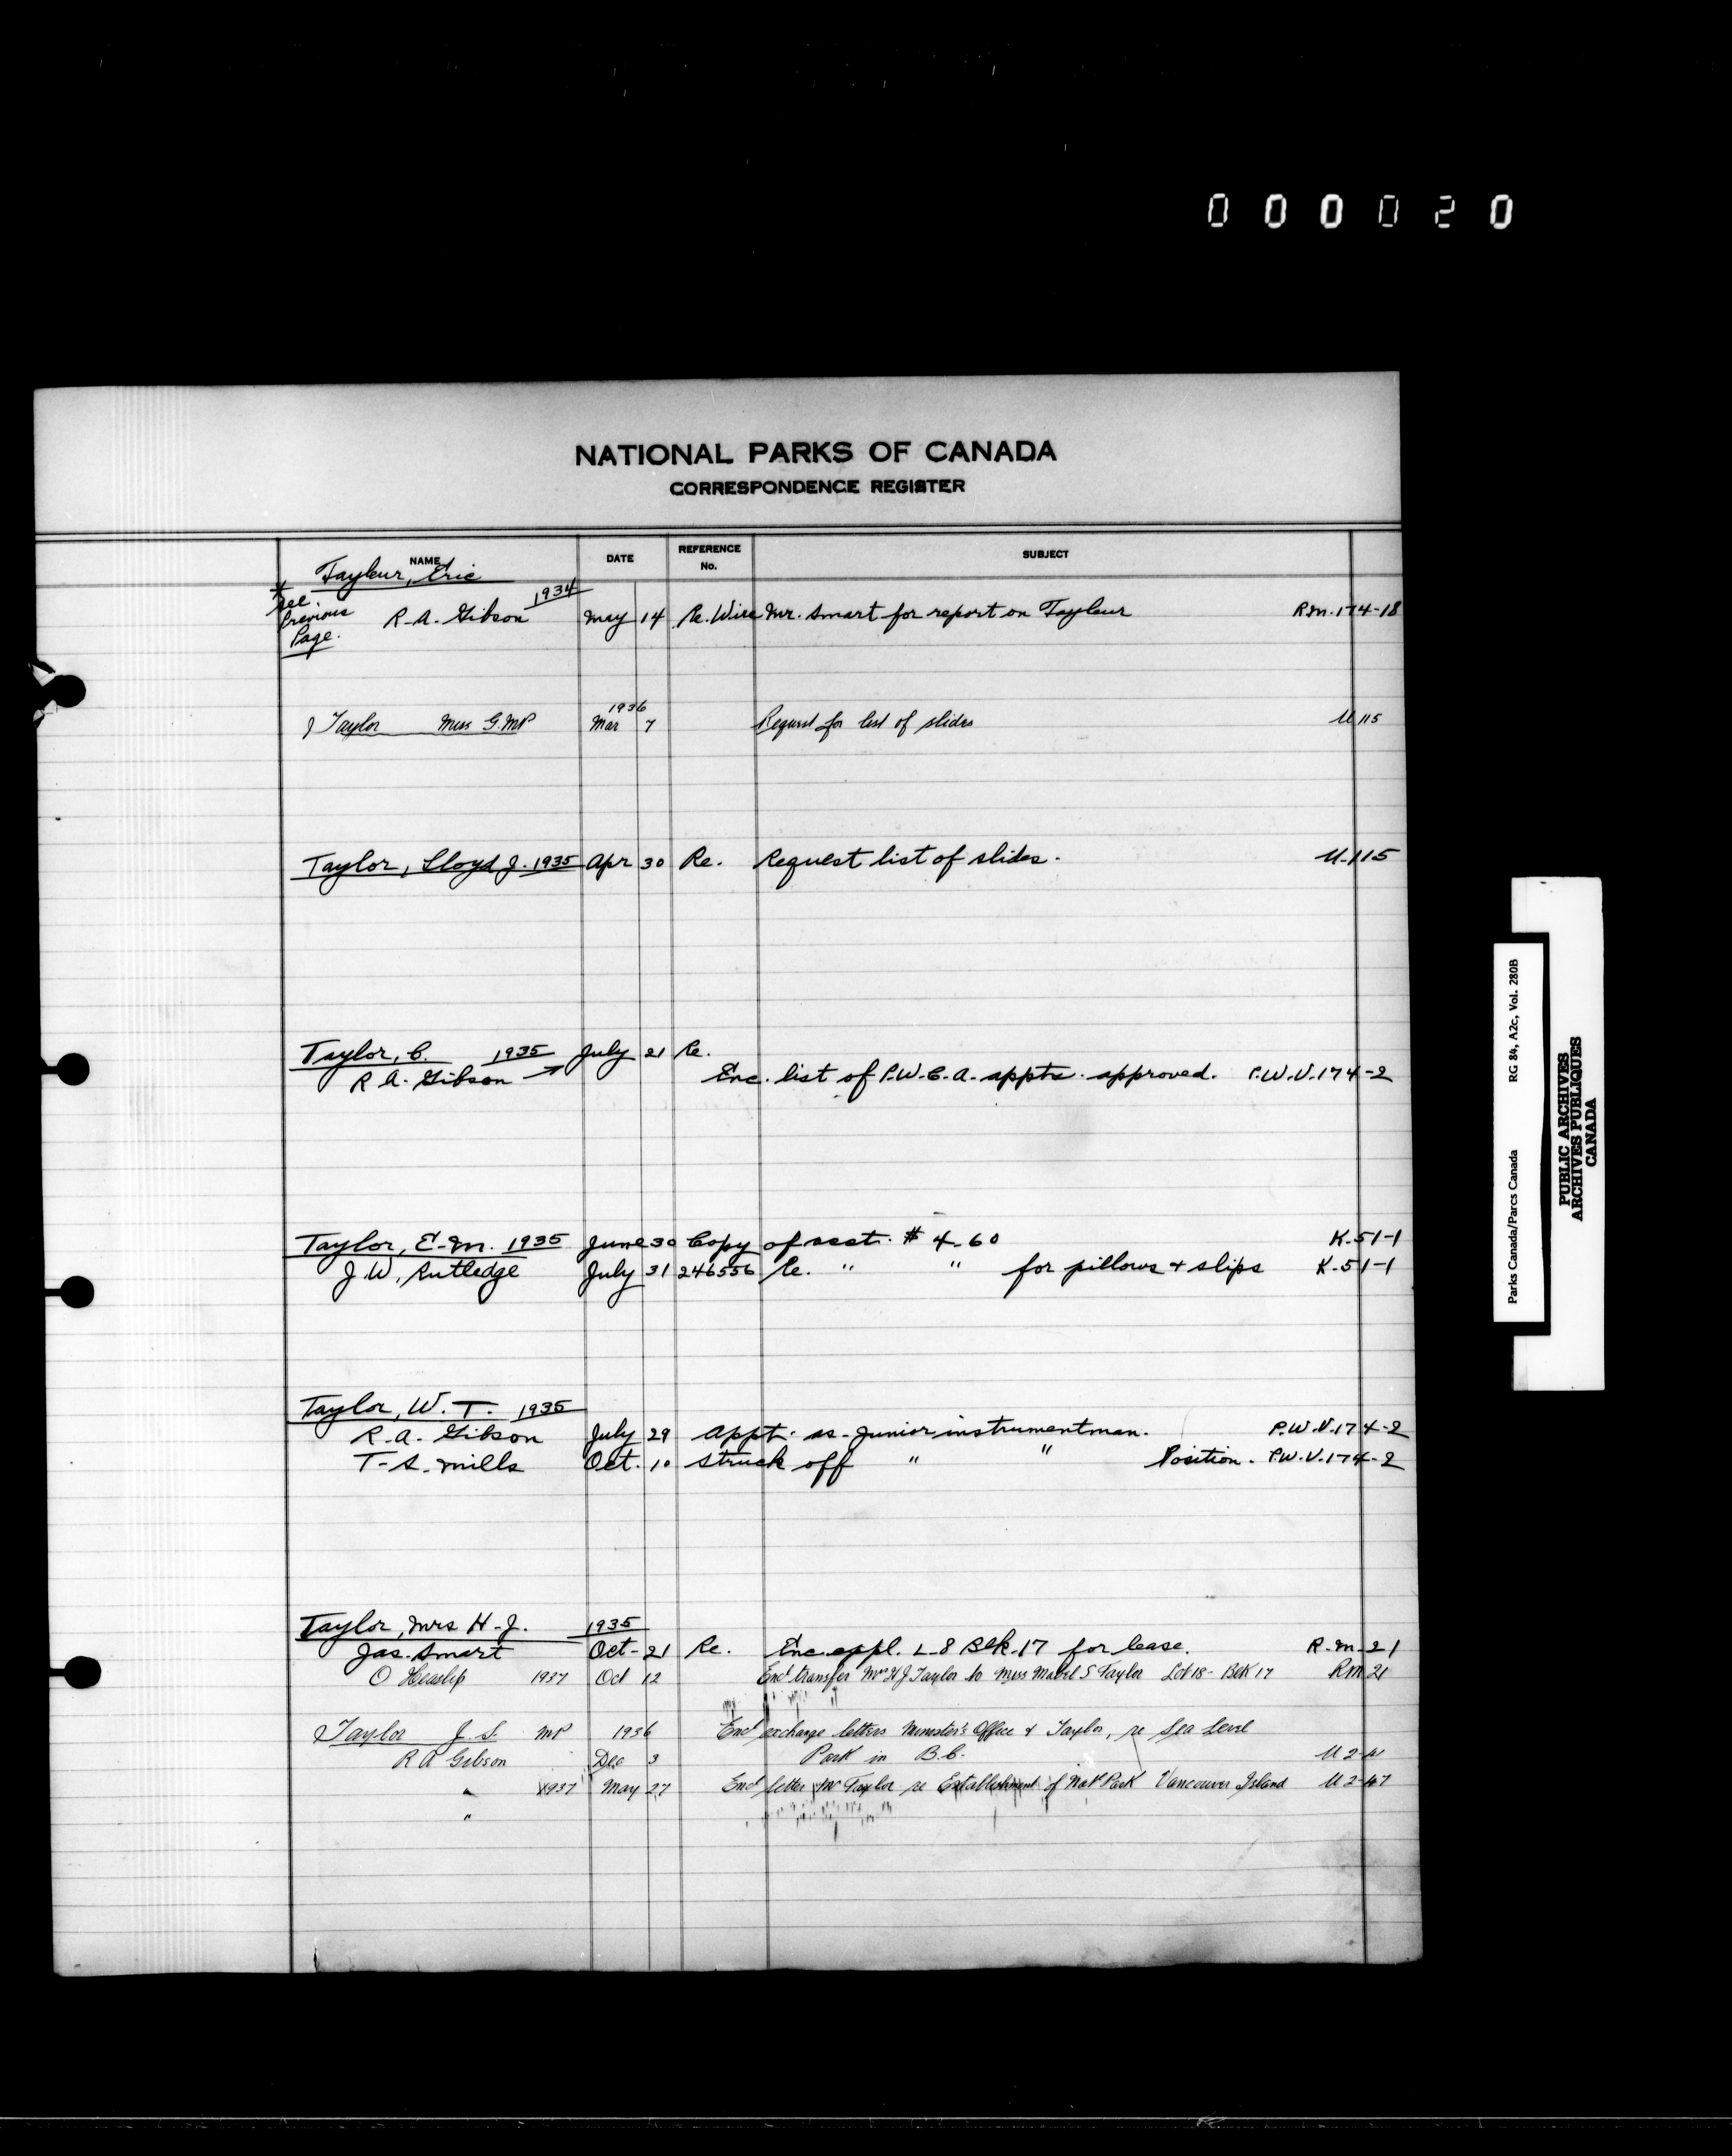 000020
NATIONAL PARKS OF CANADA
CORRESPONDENCE REGISTER
NAME DATE REFERENCE No. SUBJECT
Tayleur, Eric
* See Previous Page. R. A. Gibson 1934 May 14 Re. Wire Mr. Smart for report on Tayleur R.M.174-18
Taylor Miss G. MP 1936 Mar 7 Request for list of slides U 115
Taylor, Lloyd J. 1935 Apr 30 Re. Request list of slides. U-115
Taylor, C. 1935 July 21 Re.
R. A. Gibson Enc. list of P.W.C.A. appts. approved. P.W.V.174-2
Taylor, E.M. 1935 June 30 Copy of acct. # 4.60 K.51-1
J. W. Rutledge July 31 246556 Re. " " for pillows + slips K-51-1
Taylor, W. T. 1935
R. A. Gibson July 29 Appt. as Junior instrumentman. P.W.V.174-2
T. S. Mills Oct. 10 Struck off " " Position. P.W.V.174-2
Taylor, Mrs H. J. 1935
Jas. Smart Oct. 21 Re. Enc. appl. L-8 Blk.17 for lease. R.M.21
O Heaslip 1937 Oct 12 Encl transfer Mrs H J Taylor to Miss Mabel S Taylor Lot 18 - Blk 17 RM 21
Taylor J. S. MP 1936 Encl exchange letters Minister's Office & Taylor, re Sea Level
R A Gibson Dec 3 Park in B.C. U 2-
" 1937 May 27 Encl letter Mr Taylor re Establishment of Nat Park Vancouver Island U 2-47
"
Parks Canada/Parcs Canada RG 84, A2c, Vol. 280B
PUBLIC ARCHIVES
ARCHIVES PUBLIQUES
CANADA